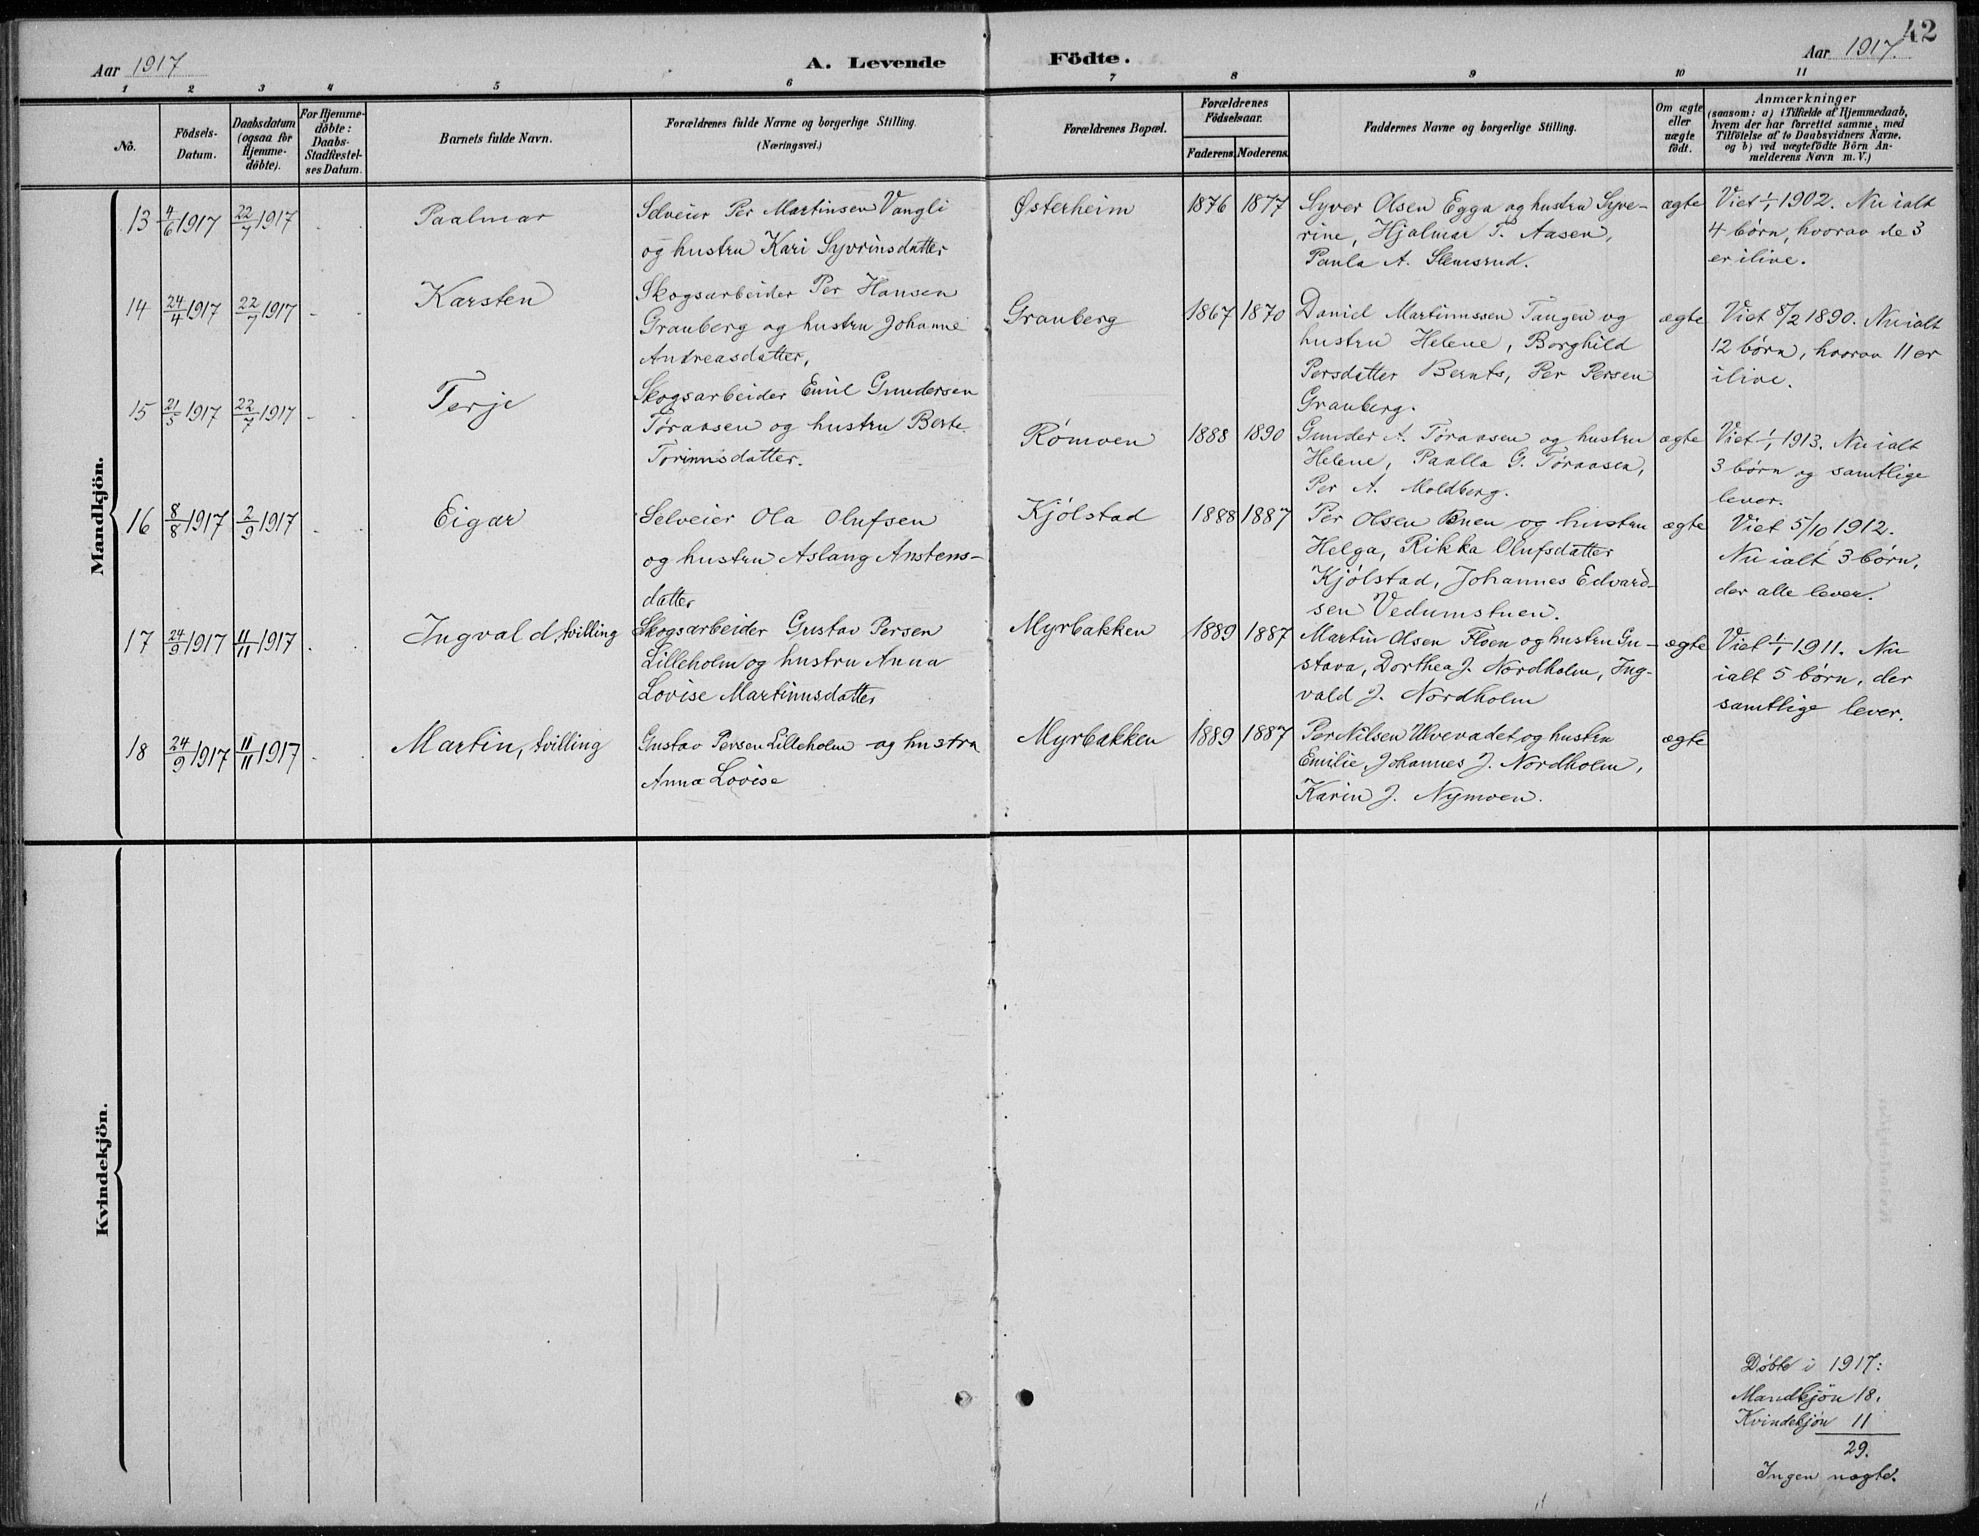 Aar 1917
A. Levende Födte.
Aar 1917.
42
1 2 3 4 5 6 7 8 9 10 11
Nô.
Födsels-
Datum.
Daabsdatum
(ogsaa för
Hjemme-
döbte).
For Hjemme-
döbte:
Daabs-
Stadfæstel-
ses Datum.
Barnets fulde Navn.
Forældrenes fulde Navne og borgerlige Stilling.
(Næringsvei.)
Forældrenes Bopæl.
Forældrenes
Födselsaar.
Faderens. Moderens.
Faddernes Navne og borgerlige Stilling.
Om ægte
eller
uægte
födt.
Anmærkninger
(saasom: a) i Tilfælde af Hjemmedaab,
hvem der har forrettet samme, med
Tilföielse af to Daabsvidners Navne,
og b) ved uægtefödte Börn An-
melderens Navn m. V.)
Mandkjön.
13 4/6 1917 22/7 1917 Paalmar
Selveier Per Martinsen Vangli
og hustru Kari Syvrinsdatter
Østerheim 1876 1877
Syver Olsen Egga og hustru Syve-
rine, Hjalmar P. Aasen,
Paula A. Slemsrud.
ægte
Viet 1/1 1902. Nu ialt
4 børn, hvorav de 3
er ilive.
14 24/4 1917 22/7 1917 Karsten
Skogsarbeider Per Hansen
Granberg og hustru Johanne
Andreasdatter,
Granberg 1867 1870
Daniel Martinussen Tangen og
hustru Helene, Borghild
Persdatter Bernts, Per Persen
Granberg.
ægte
Viet 8/2 1890. Nu ialt
12 børn, hvorav 11 er
ilive.
15 21/5 1917 22/7 1917 Terje
Skogsarbeider Emil Gundersen
Tøraasen og hustru Berte
Torinusdatter.
Rømoen 1888 1890
Gunder A. Tøraasen og hustru
Helene, Paalla G. Tøraasen,
Per A. Moldberg.
ægte
Viet 1/1 1913. Nu ialt
3 børn og samtlige
lever.
16 8/8 1917 2/9 1917 Eigar
Selveier Ola Olufsen
og hustru Aslaug Anstens-
datter
Kjølstad 1888 1887
Per Olsen Bnen og hustru
Helga, Rikka Olufsdatter
Kjølstad, Johannes Edvard-
sen Vedumstuen.
ægte
Viet 5/10 1912.
Nu ialt 3 børn,
der alle lever.
17 24/9 1917 11/11 1917 Ingvald, tvilling
Skogsarbeider Gustav Persen
Lilleholm og hustru Anna
Lovise Martinusdatter
Myrbakken 1889 1887
Martin Olsen Floen og hustru Gu-
stava, Dorthea J. Nordholm, Ing-
vald J. Nordholm
ægte
Viet 1/1 1911. Nu
ialt 5 børn, der
samtlige lever.
18 24/9 1917 11/11 1917 Martin, tvilling
Gustav Persen Lilleholm og hustru
Anna Lovise
Myrbakken 1889 1887
Per Nilsen Ulvevadet og hustru
Emilie, Johannes J. Nordholm,
Karin J. Nymoen.
ægte
Kvindekjön.
Døbte i 1917:
Mandkjön 18.
Kvindekjön 11
29.
Ingen uægte.